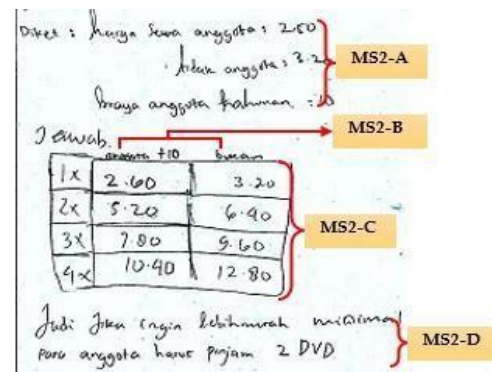 Diket : harga sewa anggota : 2.50
tidak anggota : 3.2
MS2-A
biaya anggota tahunan : 10
Jawab.
MS2-B
anggota +10 bukan
1x 2.60 3.20
2x 5.20 6.40
MS2-C
3x 7.80 9.60
4x 10.40 12.80
Jadi Jika ingin lebih murah minimal
MS2-D
para anggota harus pinjam 2 DVD